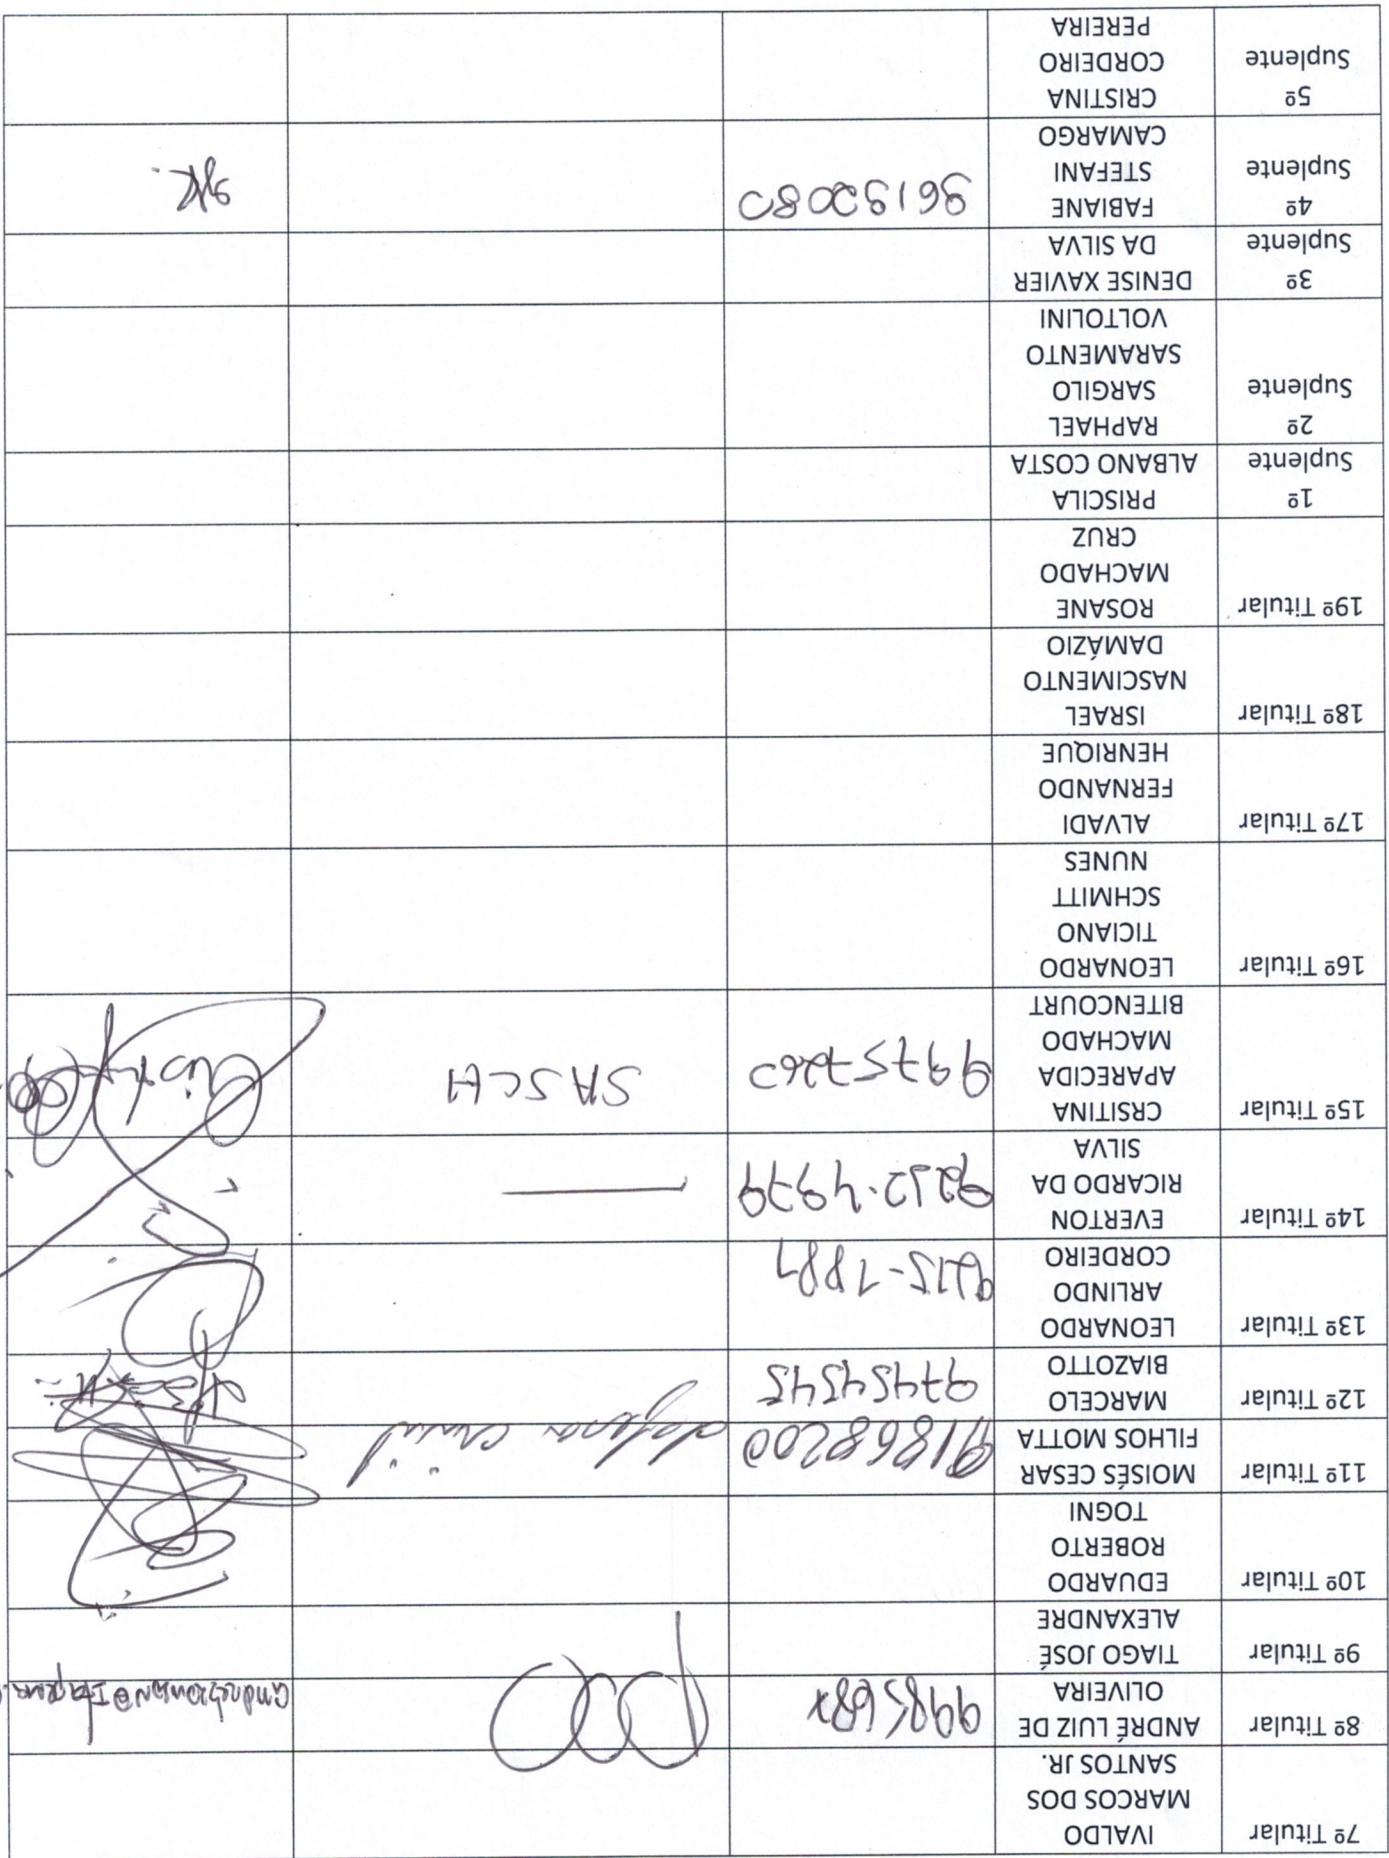 7º Titular
IVALDO
MARCOS DOS
SANTOS JR.
8º Titular
ANDRÉ LUIZ DE
OLIVEIRA
9º Titular
TIAGO JOSÉ
ALEXANDRE
10º Titular
EDUARDO
ROBERTO
TOGNI
11º Titular
MOISÉS CESAR
FILHOS MOTTA
91868200
defesa civil
12º Titular
MARCELO
BIAZOTTO
97454545
13º Titular
LEONARDO
ARLINDO
CORDEIRO
14º Titular
EVERTON
RICARDO DA
SILVA
15º Titular
CRSITINA
APARECIDA
MACHADO
BITENCOURT
99757260
SASCH
16º Titular
LEONARDO
TICIANO
SCHMITT
NUNES
17º Titular
ALVADI
FERNANDO
HENRIQUE
18º Titular
ISRAEL
NASCIMENTO
DAMÁZIO
19º Titular
ROSANE
MACHADO
CRUZ
1º
Suplente
PRISCILA
ALBANO COSTA
2º
Suplente
RAPHAEL
SARGILO
SARAMENTO
VOLTOLINI
3º
Suplente
DENISE XAVIER
DA SILVA
4º
Suplente
FABIANE
STEFANI
CAMARGO
96192080
5º
Suplente
CRISTINA
CORDEIRO
PEREIRA